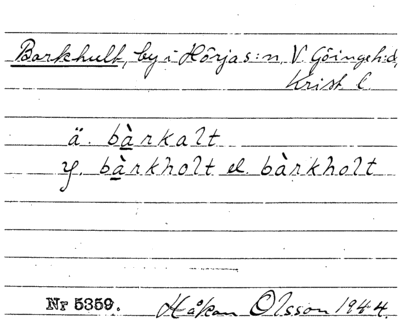 Barkhult, by i Hörjas:n V. Göingeh:d,
Krist l.
ä. bàrkalt
y. bàrkholt el. bàrkholt
Nr 5359. Håkan Olsson 1944.